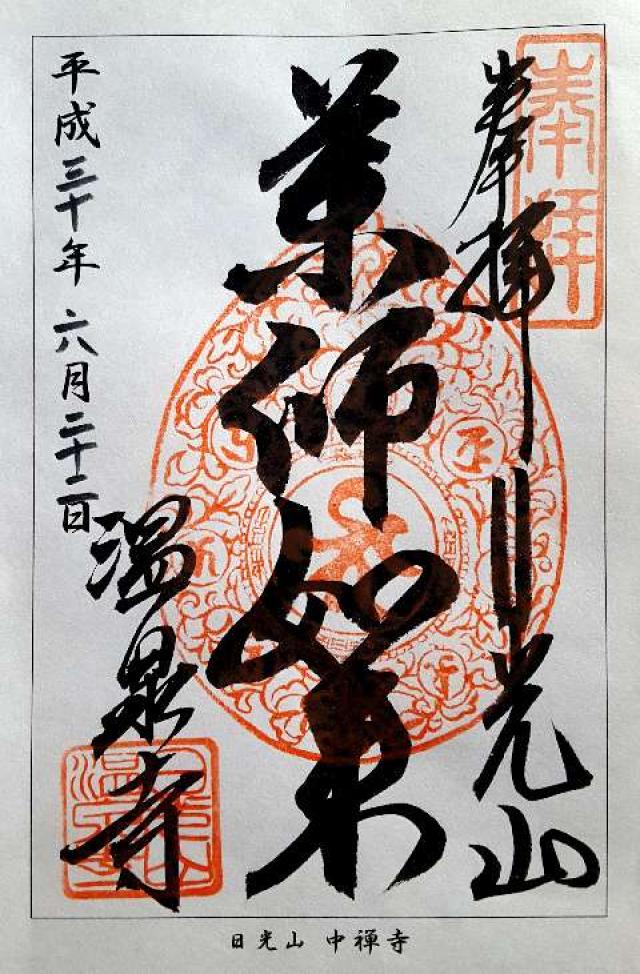 奉拝
奉拝
日光山
薬師如来
平成三十年六月二十二日
温泉寺
日光山 中禅寺